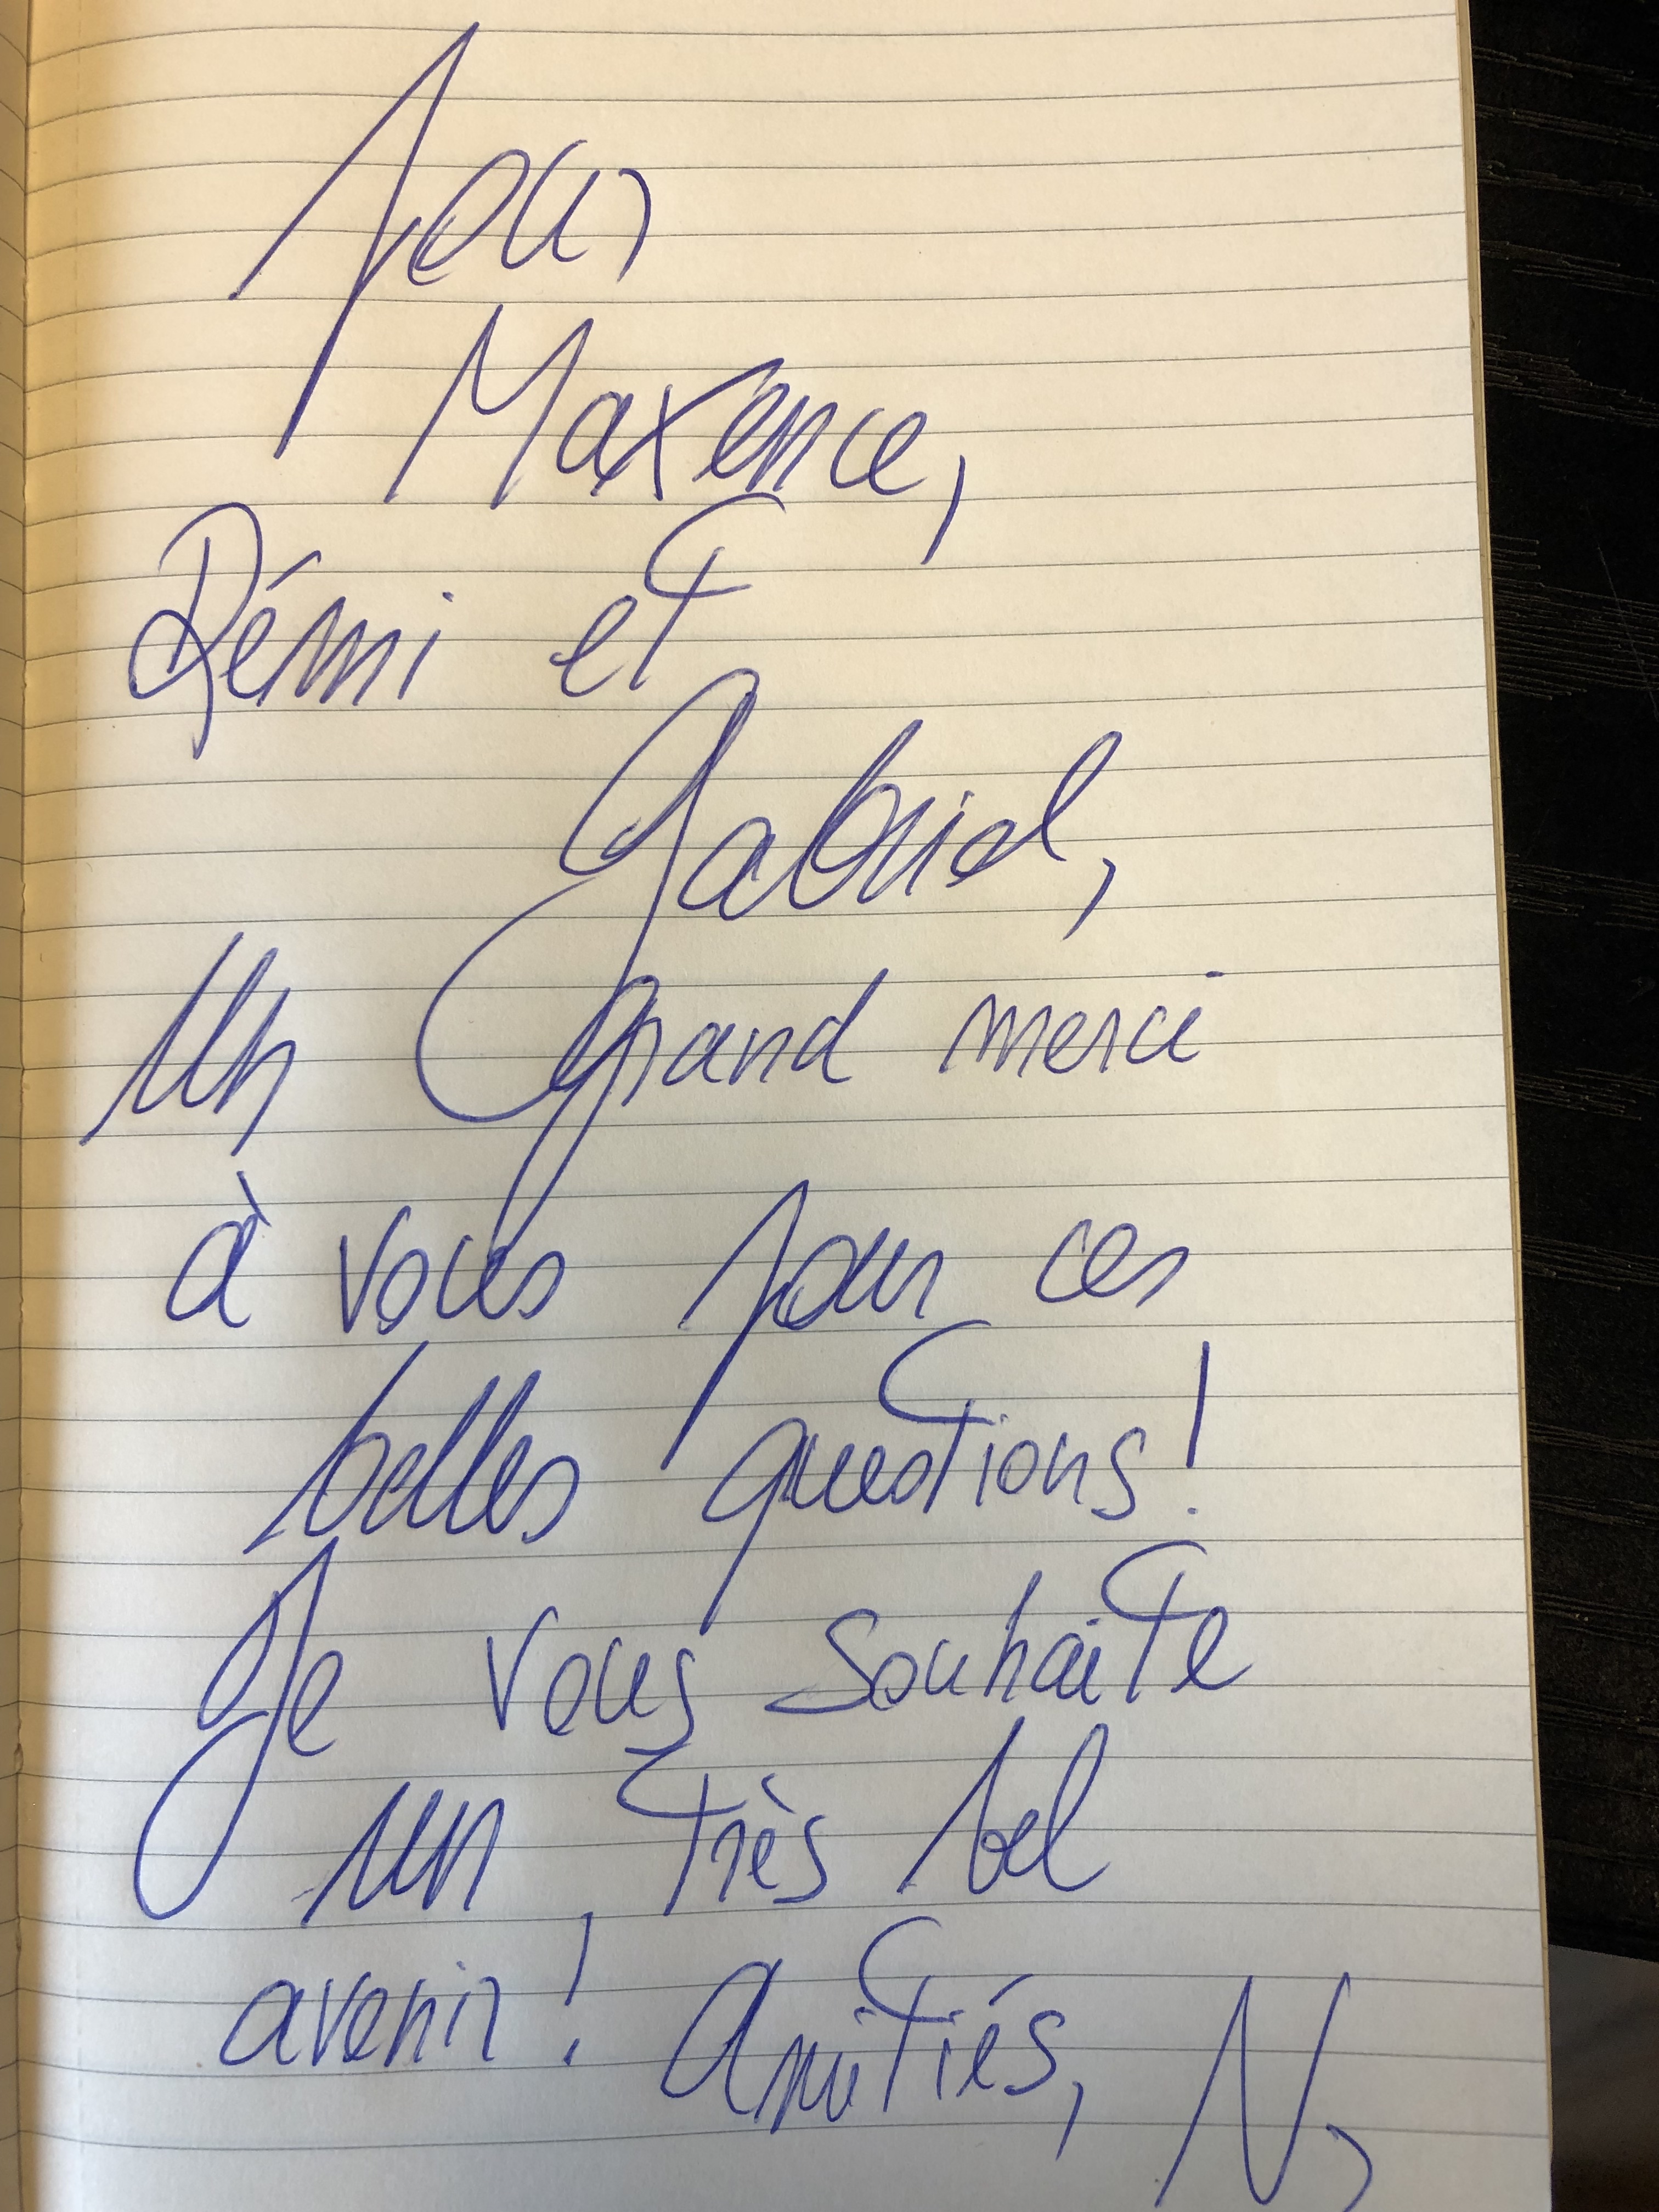 Pour
Maxence,
Rémi et
Gabriel,
Un grand merci
à vous pour ces
belles questions !
Je vous souhaite
un très bel
avenir ! Amitiés, N